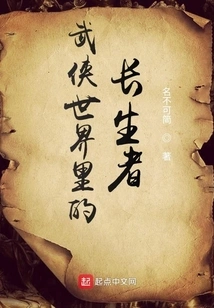 武侠世界里的
长生者
名不可闻 ◎ 著
起点中文网